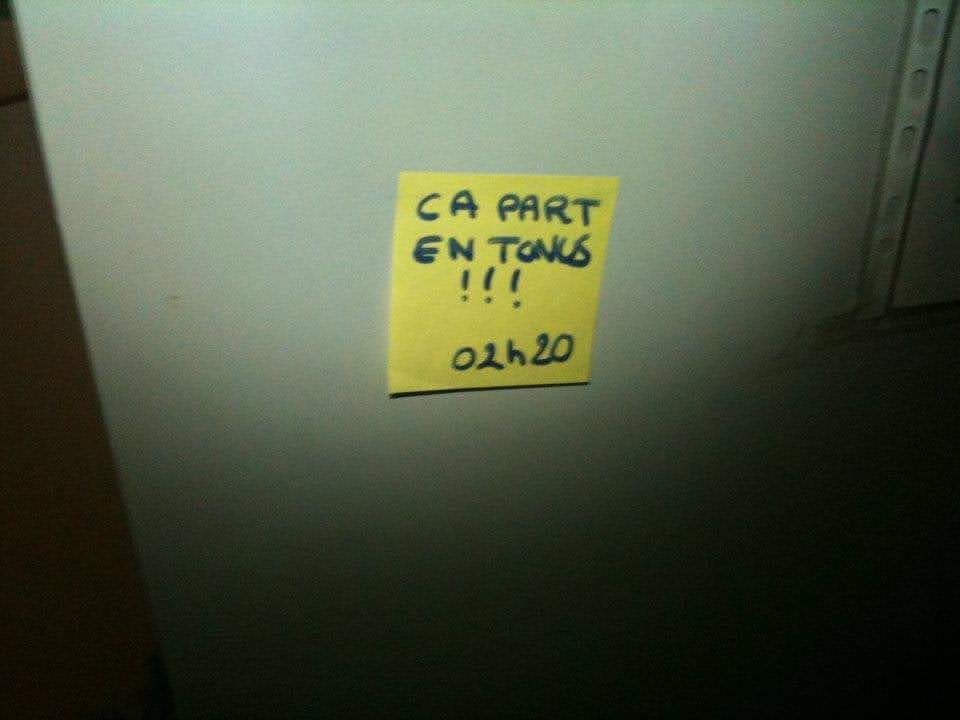 CA PART
EN TONUS
!!!
02h20